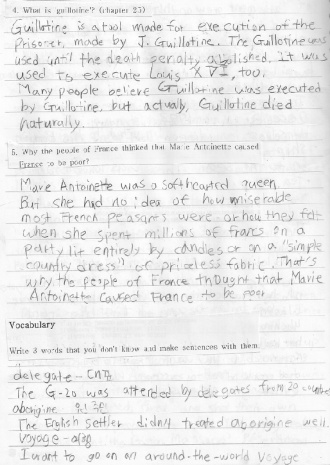 4. What is guillotine? (chapter 25)
Guillotine is a tool made for execution of the
Prisoner, made by J. Guillotine. The Guillotine was
used until the death penalty abolished. It was
used to execute Louis XVI, too.
Many people believe Guillotine was executed
by Guillotine, but actually, Guillotine died
naturally.
5. Why the people of France thought that Marie Antoinette caused
France to be poor?
Marie Antoinette was a softhearted queen.
But she had no idea of how miserable
most French peasants were or how they felt
when she spent millions of francs on a
party lit entirely by candles or on a "simple
country dress" of priceless fabric. That's
why the people of France thought that Marie
Antoinette caused France to be poor
Vocabulary
Write 3 words that you don't know and make sentences with them.
delegate - 대표
The G-20 was attended by delegates from 20
aborigine 원주민
The English settler didn't treated aborigine well.
Voyage -
I want to go on an around-the-world voyage